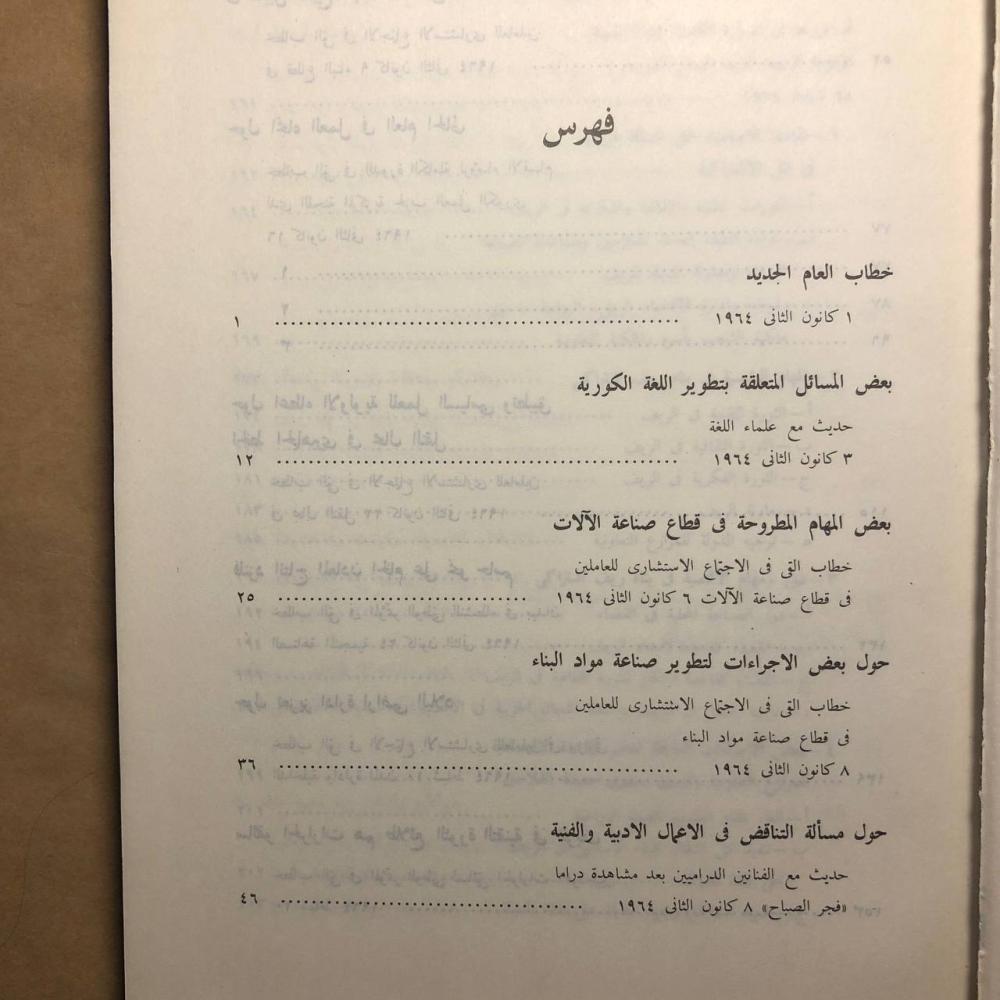 فهرس
خطاب العام الجديد
١ كانون الثانى ١٩٦٤ ........ ١
بعض المسائل المتعلقة بتطوير اللغة الكورية
حديث مع علماء اللغة
٣ كانون الثانى ١٩٦٤ ........ ١٢
بعض المهام المطروحة فى قطاع صناعة الآلات
خطاب القى فى الاجتماع الاستشارى للعاملين
فى قطاع صناعة الآلات ٦ كانون الثانى ١٩٦٤ ........ ٢٥
حول بعض الاجراءات لتطوير صناعة مواد البناء
خطاب القى فى الاجتماع الاستشارى للعاملين
فى قطاع صناعة مواد البناء
٨ كانون الثانى ١٩٦٤ ........ ٣٦
حول مسألة التناقض فى الاعمال الادبية والفنية
حديث مع الفنانين الدراميين بعد مشاهدة دراما
«فجر الصباح» ٨ كانون الثانى ١٩٦٤ ........ ٤٦